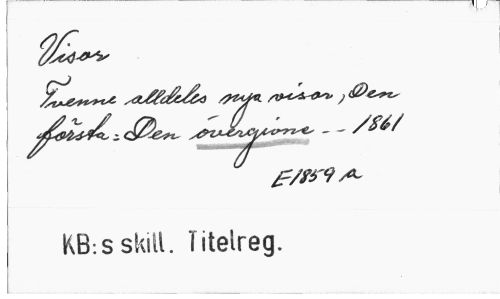 Visor
Tvenne alldeles nya visor, Den
första: Den övergione -- 1861
E1859 a
KB:s skill. Titelreg.